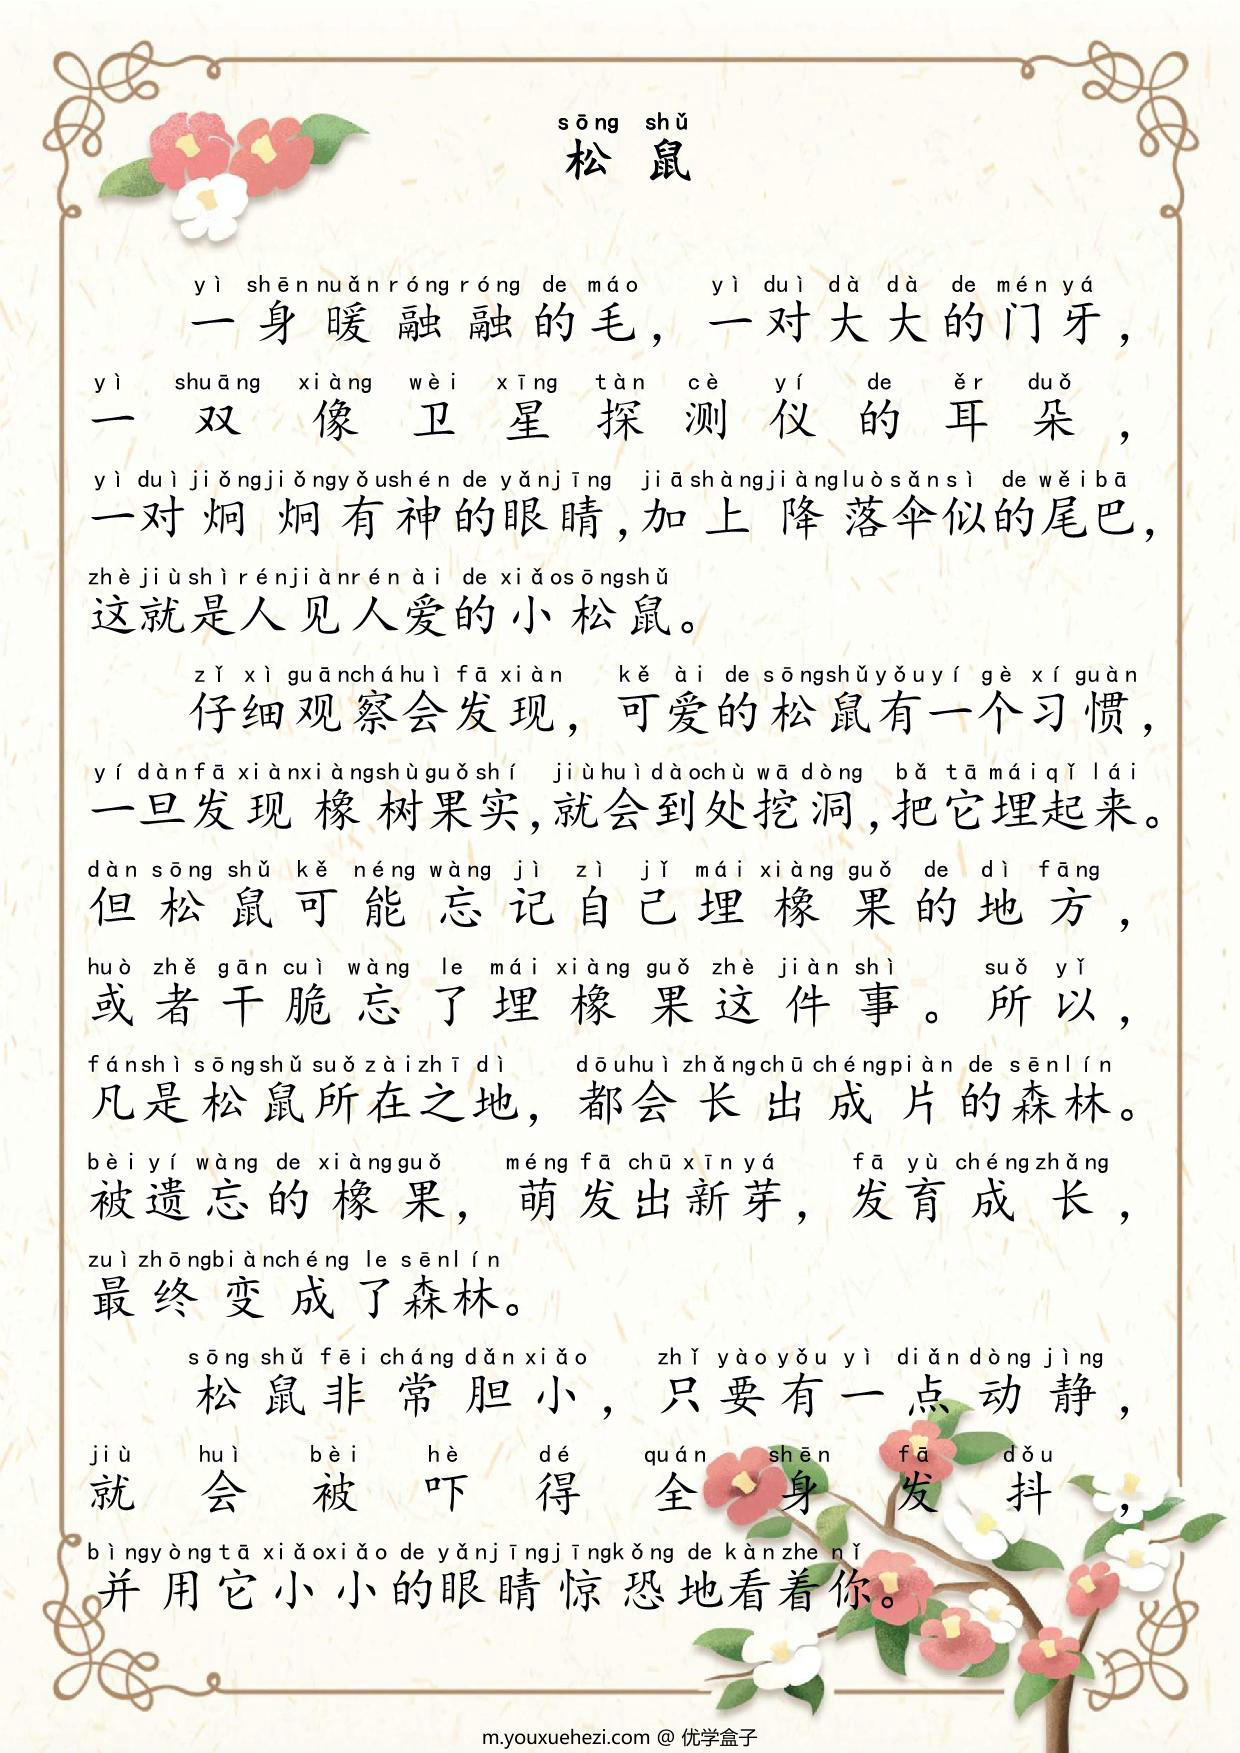 sōng shǔ
松鼠
yì shēn nuǎn róng róng de máo yì duì dà dà de mén yá
一身暖融融的毛，一对大大的门牙，
yì shuāng xiàng wèi xīng tàn cè yí de ěr duǒ
一双像卫星探测仪的耳朵，
yì duì jiǒng jiǒng yǒu shén de yǎn jīng jiā shàng jiàng luò sǎn sì de wěi bā
一对炯炯有神的眼睛，加上降落伞似的尾巴，
zhè jiù shì rén jiàn rén ài de xiǎo sōng shǔ
这就是人见人爱的小松鼠。
zǐ xì guān chá huì fā xiàn kě ài de sōng shǔ yǒu yí gè xí guàn
仔细观察会发现，可爱的松鼠有一个习惯，
yí dàn fā xiàn xiàng shù guǒ shí jiù huì dào chù wā dòng bǎ tā mái qǐ lái
一旦发现橡树果实，就会到处挖洞，把它埋起来。
dàn sōng shǔ kě néng wàng jì zì jǐ mái xiàng guǒ de dì fāng
但松鼠可能忘记自己埋橡果的地方，
huò zhě gān cuì wàng le mái xiàng guǒ zhè jiàn shì suǒ yǐ
或者干脆忘了埋橡果这件事。所以，
fán shì sōng shǔ suǒ zài zhī dì dōu huì zhǎng chū chéng piàn de sēn lín
凡是松鼠所在之地，都会长出成片的森林。
bèi yí wàng de xiàng guǒ méng fā chū xīn yá fā yù chéng zhǎng
被遗忘的橡果，萌发出新芽，发育成长，
zuì zhōng biàn chéng le sēn lín
最终变成了森林。
sōng shǔ fēi cháng dǎn xiǎo zhǐ yào yǒu yì diǎn dòng jìng
松鼠非常胆小，只要有一点动静，
jiù huì bèi hè dé quán shēn fā dǒu
就会被吓得全身发抖，
bìng yòng tā xiǎo xiǎo de yǎn jīng jīng kǒng de kàn zhe nǐ
并用它小小的眼睛惊恐地看着你。
m.youxuehezi.com @ 优学盒子